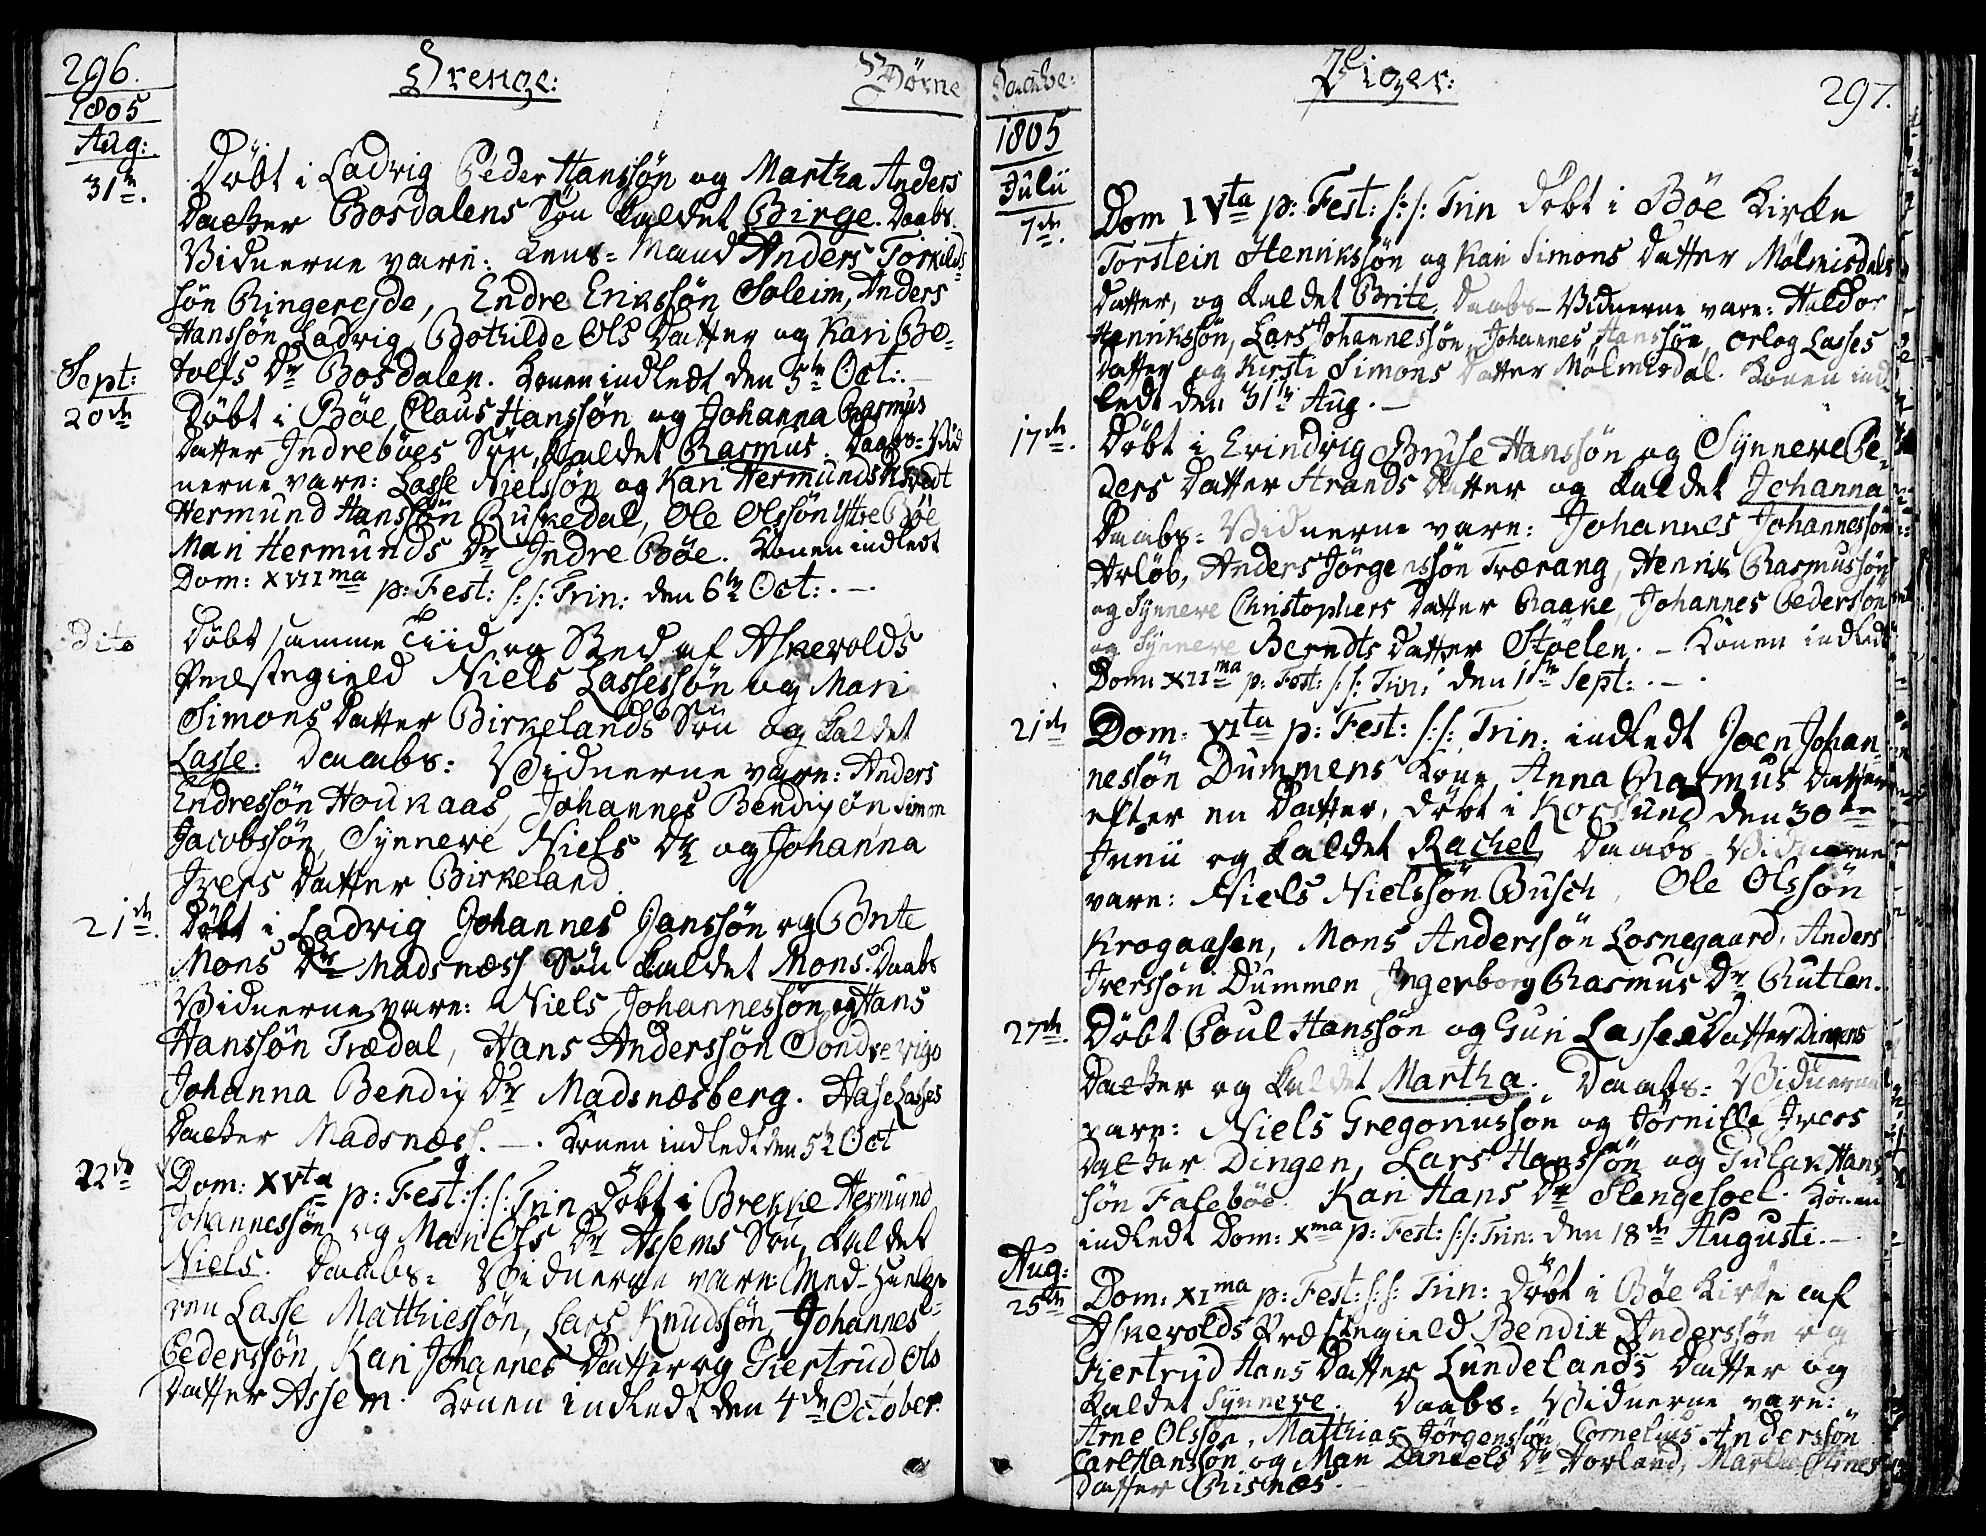 296.
Drenge:
Börne
1805
Aug:
31te.
Döbt i Ladvig Peder Hanssön og Martha Anders
Datter Bosdalens Sön kaldet Birge. Daabs-
Vidnerne vare: Lens-Mand Anders Torkilds-
sön Ringereide, Endre Erikssön Soleim, Anders
Hanssön Ladvig, Bothilde Ols Datter og Kari Bo-
tolfs Dr Bosdalen. Konen indledt den 5te Oct:.
Sept:
20de
Döbt i Böe Claus Hanssön og Johanna Rasmus
Datter Indreböes Sön, kaldet Rasmus. Daabs-Vid
nerne vare: Lasse Nielssön og Kari Hermunds
Hermund Hanssön Ruskedal, Ole Olssön Ytre Böe
Mari Hermunds Dr Indre Böe. Konen indledt
Dom: XVIIma p: Fest: s:s: Trin: den 6te Oct:. —
Dito
Döbt samme Tiid og Sted af Askevolds
Præstegield Niels Lassessön og Mari
Simons Datter Birkelands Sön og kaldet
Lasse. Daabs-Vidnerne vare: Anders
Endressön Houkaas, Johannes Bendixön Simon
Jacobssön, Synneve Niels Dr og Johanna
Ivers Datter Birkeland
21de.
Döbt i Ladvig Johannes Janssön og Brite
Mons Dr Madsnæss Sön kaldet Mons. Daabs
Vidnerne vare: Niels Johannessön og Hans
Hanssön Trædal, Hans Anderssön Söndre Vigo
Johanna Bendix Dr Madsnæsberg. Aase Lasses
Datter Madsnæss. —. Konen indledt den 5te Oct
22de
Dom: XVta p: Fest: s:s: Trin Döbt i Brekke Hermund
Johannessön og Mari Ols Dr Assems Sön, kaldet
Niels. Daabs-Vidnerne vare: Med-Hielpe-
ren Lasse Matthiessön, Lars Knudssön, Johannes
Pederssön, Kari Johannes Datter og Giertrud Ols
Datter Assem. Konen indledt den 4de October.
Daabte:
Piger:
297.
1805
Julii
7de.
Dom IVta p: Fest: s:s: Trin Döbt i Böe Kirke
Torstein Henrikssön og Kari Simons Datter Mölmisdals
Datter, og kaldet Brite. Daabs-Vidnerne vare: Haldor
Henrikssön, Lars Johannessön, Johannes Hanssön, Orlog Lasses
Datter og Kirsti Simons Datter Mölmisdal. Konen ind
ledt den 31te Aug. —
17de.
Döbt i Evindvig Bruse Hanssön og Synneve Pe-
ders Datter Strands Datter og kaldet Johanna
Daabs-Vidnerne vare: Johannes Johannessön
Arlöb, Anders Jörgenssön Trævang, Henrik Rasmussön
og Synneve Christophers Datter Raake, Johannes Pederssön
og Synneve Berndts Datter Stöelen. — Konen indledt
Dom: XIIma p: Fest: s:s: Trin: den 1ste Sept:. —.
21de
Dom: VIta p: Fest: s:s: Trin: indledt Joen Johan-
nessön Dummens Kone Anna Rasmus Datter
efter en Datter, döbt i Korssund den 30te
Junii og kaldet Rachel, Daabs-Vidnerne
vare: Niels Nielssön Busch, Ole Olssön
Krogaasen, Mons Anderssön Losnegaard, Anders
Iverssön Dummen Ingerborg Rasmus Dr Rutlen.
27de.
Döbt Poul Hanssön og Guri Lasses Datter Dingens
Datter og kaldet Martha. Daabs-Vidnerne
vare: Niels Gregoriussön og Jörnille Ivers
Datter Dingen, Lars Hanssön og Gulak Hans-
sön Faleböe Kari Hans Dr Slengesoel. Konen
indledt Dom: Xma p: Fest: s:s: Trin: den 18de Augusti. —.
Aug:
25de
Dom: XIma p: Fest: s:s: Trin: Döbt i Böe Kirke af
Askevolds Præstegield Bendix Anderssön og
Giertrud Hans Datter Lundelands Datter og
kaldet Synneve. Daabs-Vidnerne vare:
Arne Olssön, Matthias Jörgenssön, Cornelius Anderssön
Carl Hanssön og Mari Daniels Dr Hovland, Martha
Datter Risnæs.